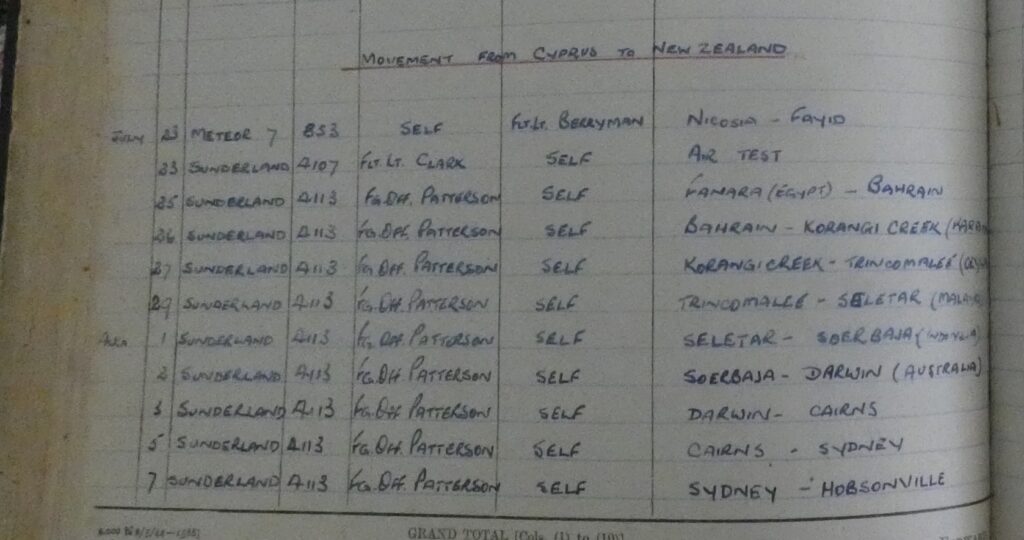 MOVEMENT FROM CYPRUS TO NEW ZEALAND
JULY 23 METEOR 7 853 SELF FLT. LT. BERRYMAN NICOSIA - FAYID
23 SUNDERLAND 4107 FLT. LT. CLARK SELF AIR TEST
25 SUNDERLAND 4113 FG. OFF. PATTERSON SELF FANARA (EGYPT) - BAHRAIN
26 SUNDERLAND 4113 FG. OFF. PATTERSON SELF BAHRAIN - KORANGI CREEK
27 SUNDERLAND 4113 FG. OFF. PATTERSON SELF KORANGI CREEK - TRINCOMALEE
29 SUNDERLAND 4113 FG. OFF. PATTERSON SELF TRINCOMALEE - SELETAR (MALAYA
1 SUNDERLAND 4113 FG. OFF. PATTERSON SELF SELETAR - SOERBAJA
2 SUNDERLAND 4113 FG. OFF. PATTERSON SELF SOERBAJA - DARWIN (AUSTRALIA)
3 SUNDERLAND 4113 FG. OFF. PATTERSON SELF DARWIN - CAIRNS
5 SUNDERLAND 4113 FG. OFF. PATTERSON SELF CAIRNS - SYDNEY
7 SUNDERLAND 4113 FG. OFF. PATTERSON SELF SYDNEY - HOBSONVILLE
GRAND TOTAL [Cols. (1) to (10)]